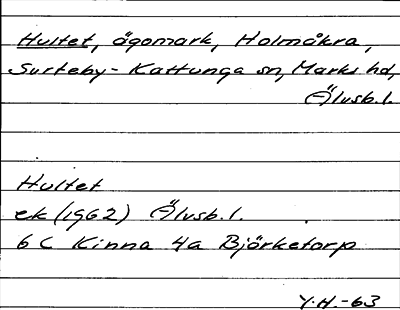 Hultet, ägomark, Holmåkra,
Surteby-Kattunga sn, Marks hd,
Älvsb.l.
Hultet
ek (1962) Älvsb.l.
6C Kinna 4a Björketorp
Y.H.-63